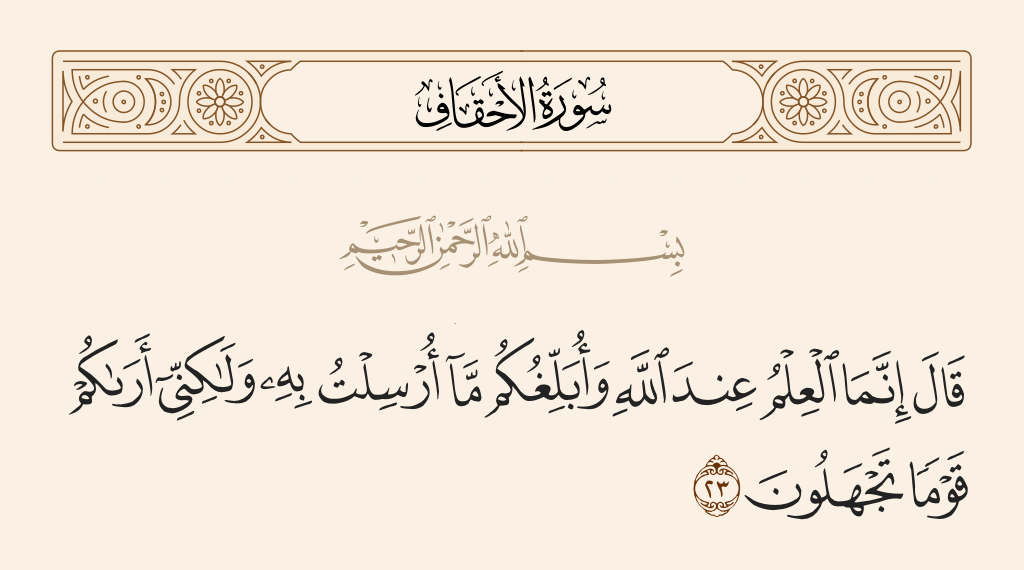 سُورَةُ الأَحْقَافِ
بِسْمِ ٱللَّهِ ٱلرَّحْمَٰنِ ٱلرَّحِيمِ
قَالَ إِنَّمَا ٱلْعِلْمُ عِندَ ٱللَّهِ وَأُبَلِّغُكُم مَّآ أُرْسِلْتُ بِهِۦ وَلَٰكِنِّىٓ أَرَىٰكُمْ
قَوْمًا تَجْهَلُونَ ٢٣